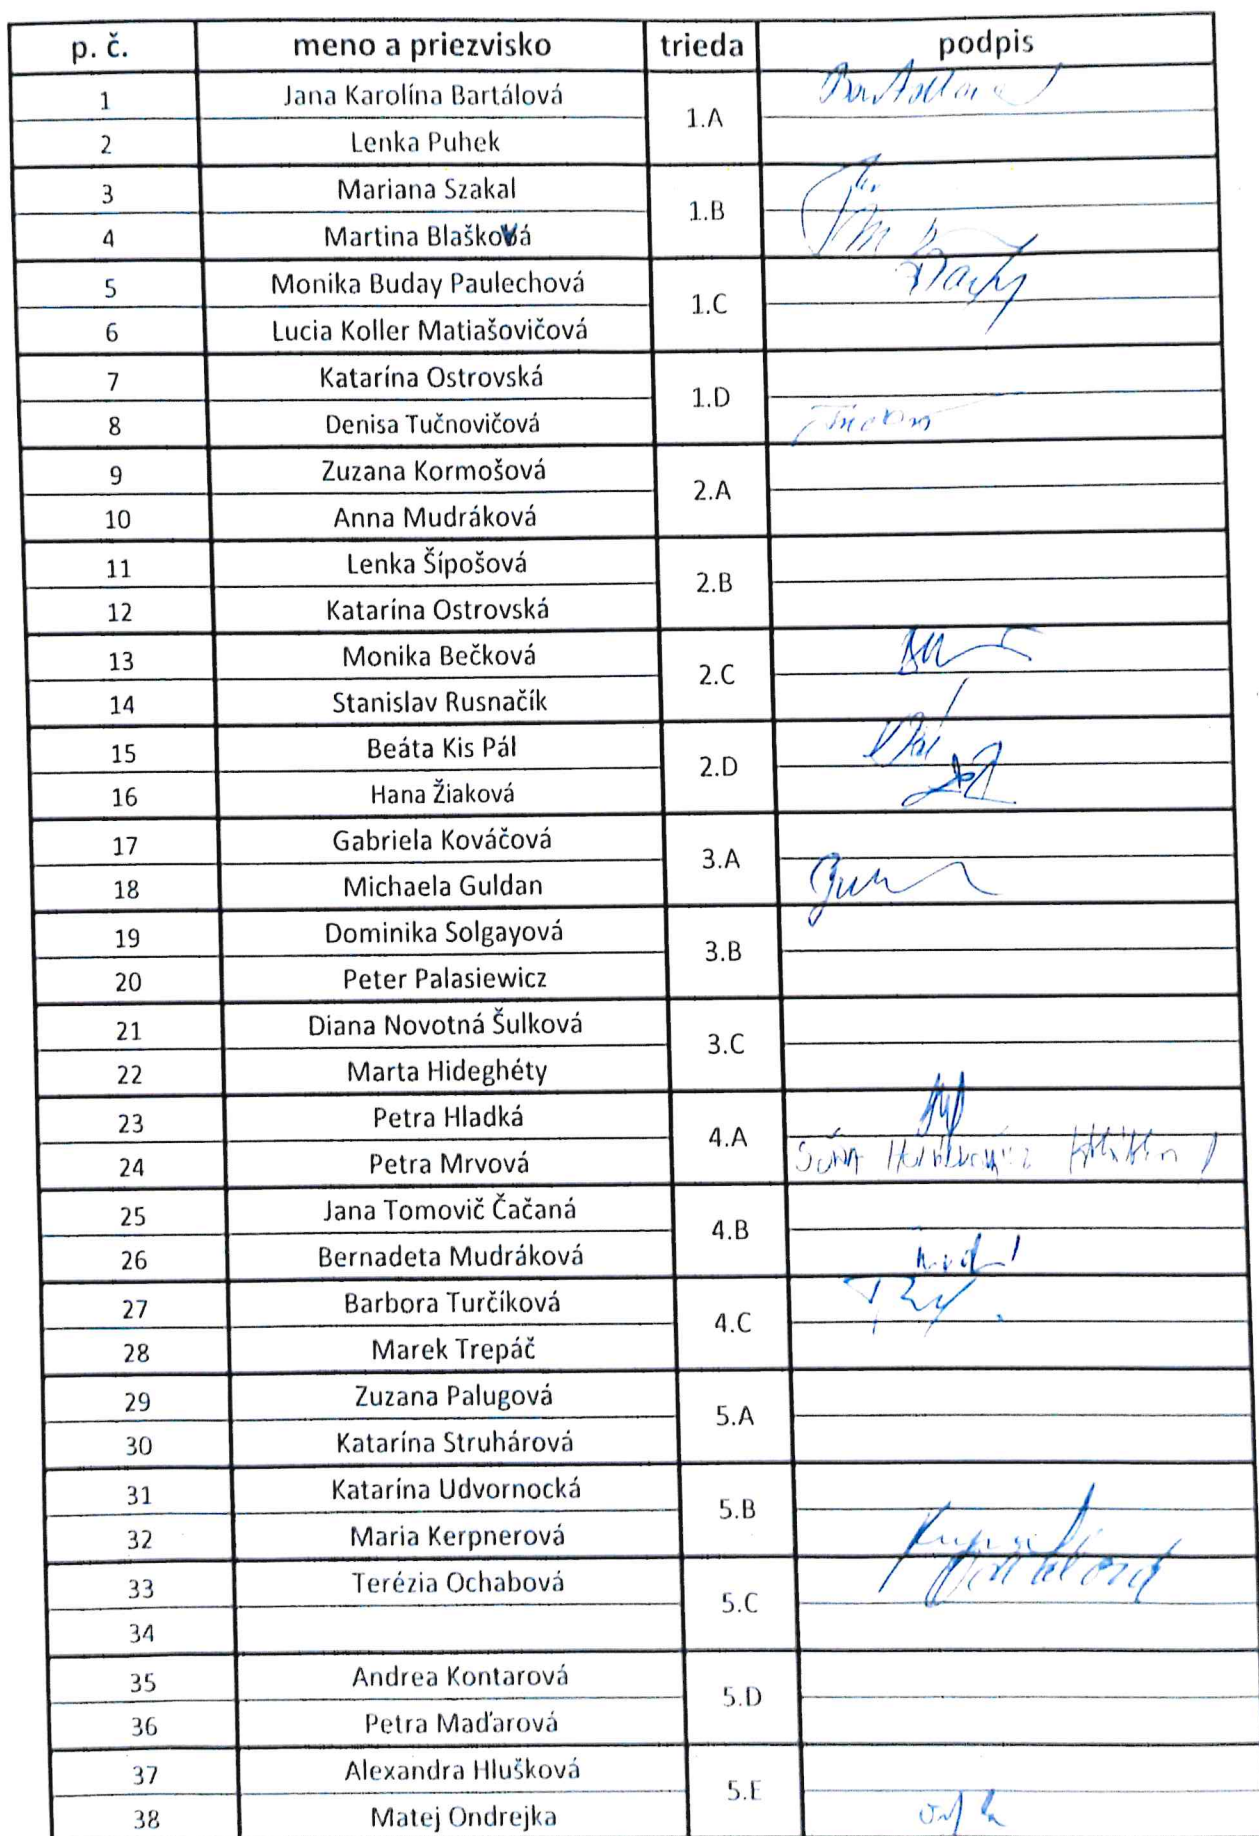 p. č. meno a priezvisko trieda podpis
1 Jana Karolína Bartálová 1.A
2 Lenka Puhek
3 Mariana Szakal 1.B
4 Martina Blašková
5 Monika Buday Paulechová 1.C
6 Lucia Koller Matiašovičová
7 Katarína Ostrovská 1.D
8 Denisa Tučnovičová
9 Zuzana Kormošová 2.A
10 Anna Mudráková
11 Lenka Šípošová 2.B
12 Katarína Ostrovská
13 Monika Bečková 2.C
14 Stanislav Rusnačík
15 Beáta Kis Pál 2.D
16 Hana Žiaková
17 Gabriela Kováčová 3.A
18 Michaela Guldan
19 Dominika Solgayová 3.B
20 Peter Palasiewicz
21 Diana Novotná Šulková 3.C
22 Marta Hideghéty
23 Petra Hladká 4.A
24 Petra Mrvová
25 Jana Tomovič Čačaná 4.B
26 Bernadeta Mudráková
27 Barbora Turčíková 4.C
28 Marek Trepáč
29 Zuzana Palugová 5.A
30 Katarína Struhárová
31 Katarína Udvornocká 5.B
32 Maria Kerpnerová
33 Terézia Ochabová 5.C
34
35 Andrea Kontarová 5.D
36 Petra Maďarová
37 Alexandra Hlušková 5.E
38 Matej Ondrejka